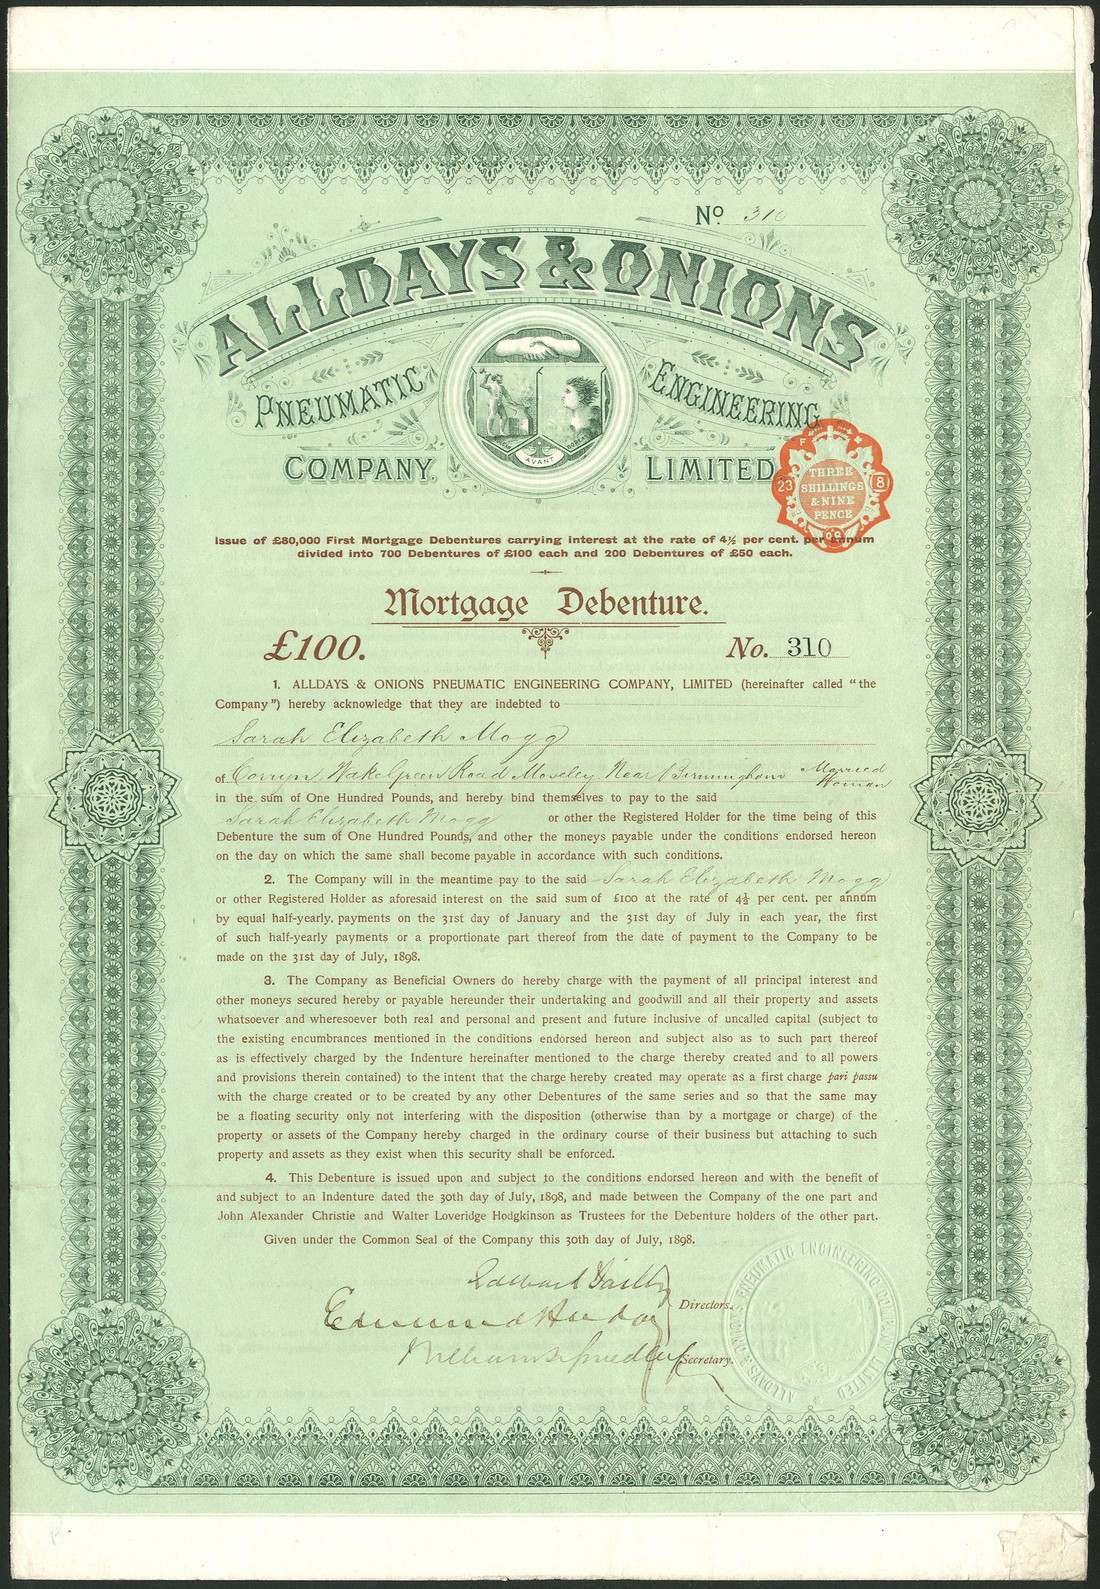 No. 310
ALLDAYS & ONIONS
PNEUMATIC ENGINEERING
COMPANY, LIMITED
AVANT
F
23 THREE SHILLINGS & NINE PENCE 8
98
Issue of £80,000 First Mortgage Debentures carrying interest at the rate of 4½ per cent. per annum
divided into 700 Debentures of £100 each and 200 Debentures of £50 each.
Mortgage Debenture.
£100. No. 310
1. ALLDAYS & ONIONS PNEUMATIC ENGINEERING COMPANY, LIMITED (hereinafter called "the
Company") hereby acknowledge that they are indebted to
Sarah Elizabeth Mogg
of Green Road Moseley Near Birmingham Married Woman
in the sum of One Hundred Pounds, and hereby bind themselves to pay to the said
Sarah Elizabeth Mogg or other the Registered Holder for the time being of this
Debenture the sum of One Hundred Pounds, and other the moneys payable under the conditions endorsed hereon
on the day on which the same shall become payable in accordance with such conditions.
2. The Company will in the meantime pay to the said Sarah Elizabeth Mogg
or other Registered Holder as aforesaid interest on the said sum of £100 at the rate of 4½ per cent. per annum
by equal half-yearly. payments on the 31st day of January and the 31st day of July in each year, the first
of such half-yearly payments or a proportionate part thereof from the date of payment to the Company to be
made on the 31st day of July, 1898.
3. The Company as Beneficial Owners do hereby charge with the payment of all principal interest and
other moneys secured hereby or payable hereunder their undertaking and goodwill and all their property and assets
whatsoever and wheresoever both real and personal and present and future inclusive of uncalled capital (subject to
the existing encumbrances mentioned in the conditions endorsed hereon and subject also as to such part thereof
as is effectively charged by the Indenture hereinafter mentioned to the charge thereby created and to all powers
and provisions therein contained) to the intent that the charge hereby created may operate as a first charge pari passu
with the charge created or to be created by any other Debentures of the same series and so that the same may
be a floating security only not interfering with the disposition (otherwise than by a mortgage or charge) of the
property or assets of the Company hereby charged in the ordinary course of their business but attaching to such
property and assets as they exist when this security shall be enforced.
4. This Debenture is issued upon and subject to the conditions endorsed hereon and with the benefit of
and subject to an Indenture dated the 30th day of July, 1898, and made between the Company of the one part and
John Alexander Christie and Walter Loveridge Hodgkinson as Trustees for the Debenture holders of the other part.
Given under the Common Seal of the Company this 30th day of July, 1898.
Directors.
Secretary.
ALLDAYS & ONIONS PNEUMATIC ENGINEERING COMPANY LIMITED